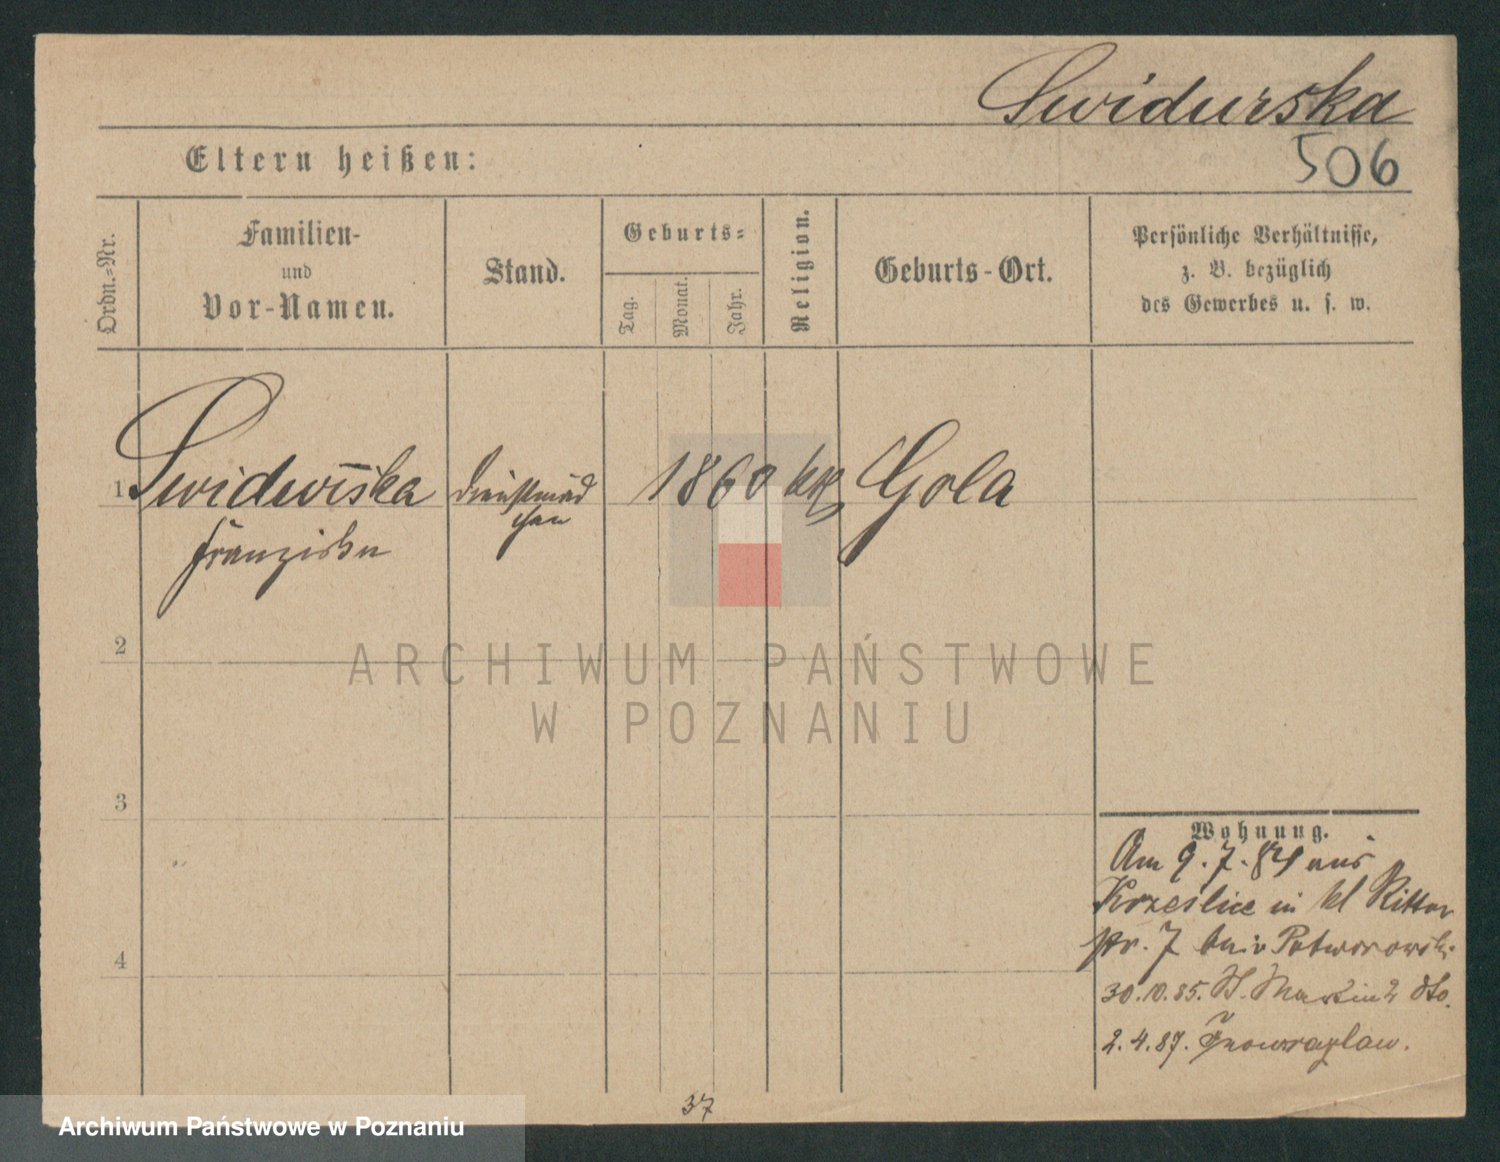 Swidurska
506
Eltern heißen:
Ordn.-Nr.
Familien-
und
Vor-Namen.
Stand.
Geburts-
Tag.
Monat.
Jahr.
Religion.
Geburts-Ort.
Persönliche Verhältnisse,
z. B. bezüglich
des Gewerbes u. s. w.
1 Swidurska Dienstmäd 1860 kth Gola
chen
Franziska
2
ARCHIWUM PAŃSTWOWE
W POZNANIU
3
4
Wohnung.
Am 9.7.84 aus
Krzeslice in kl Ritter
str. 7 bei v Potworowski
30.10.85. St. Martin 2 dto.
2.4.87. Inowrazlaw.
37
Archiwum Państwowe w Poznaniu